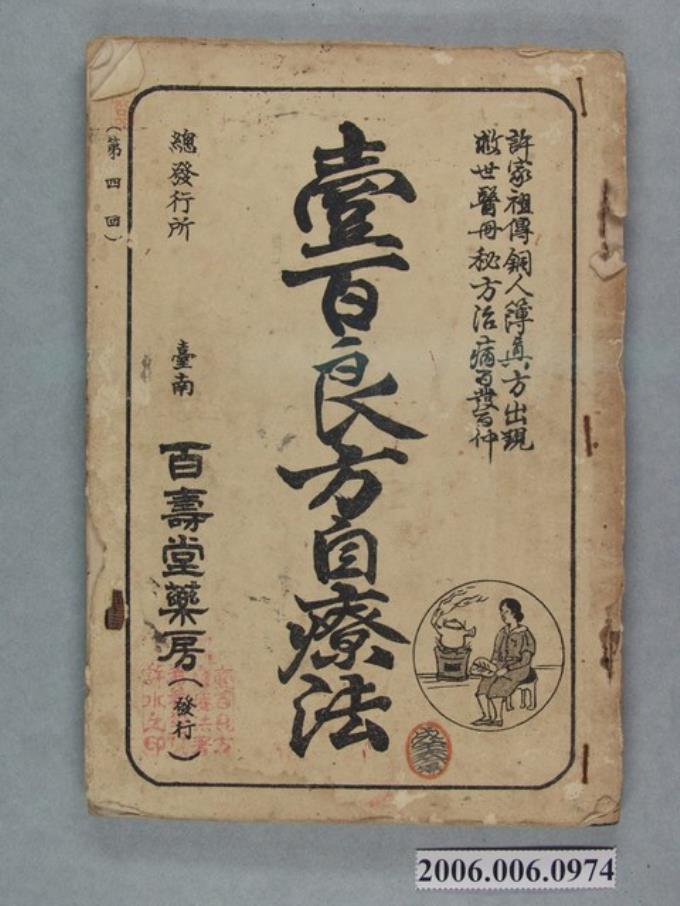 許家祖傳銅人簿真方出現
救世醫冊秘方治病百發百仲
壹百良方自療法
總發行所
臺南
百壽堂藥房(發行)
(第四回)
許水之印
2006.006.0974